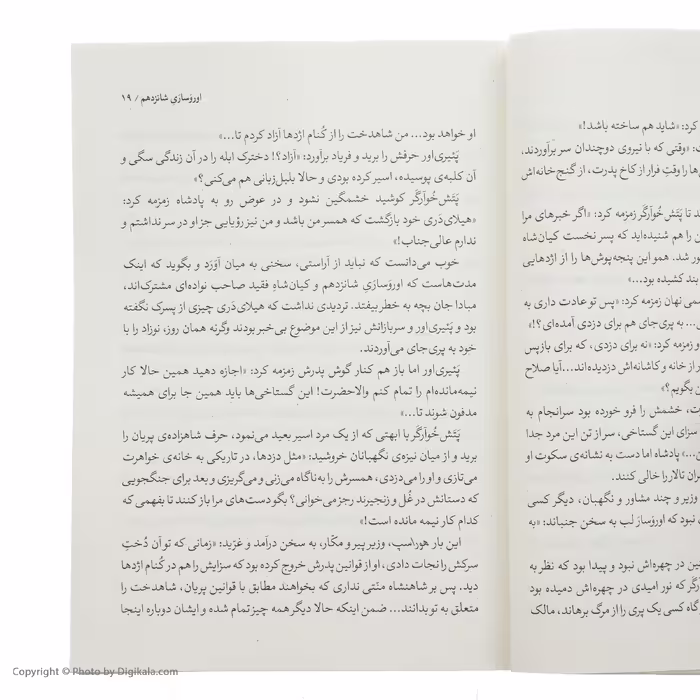 اوروَسازیِ شانزدهم / ۱۹
او خواهد بود... من شاهدخت را از کُنام اژدها آزاد کردم تا...»
پَئیری‌اور حرفش را برید و فریاد برآورد: «آزاد؟! دخترک ابله را در آن زندگی سگی و
آن کلبه‌ی پوسیده، اسیر کرده بودی و حالا بلبل‌زبانی هم می‌کنی؟»
پَتَش‌خُوآرگَر کوشید خشمگین نشود و در عوض رو به پادشاه زمزمه کرد:
«هیلای‌دَری خود بازگشت که همسر من باشد و من نیز رؤیایی جز او در سر نداشتم و
ندارم عالی‌جناب!»
خوب می‌دانست که نباید از آراستی، سخنی به میان آوَرَد و بگوید که اینک
مدت‌هاست که اوروَسازیِ شانزدهم و کیان‌شاهِ فقید صاحب نواده‌ای مشترک‌اند،
مبادا جان بچه به خطر بیفتد. تردیدی نداشت که هیلای‌دَری چیزی از پسرک نگفته
بود و پَئیری‌اور و سربازانش نیز از این موضوع بی‌خبر بودند وگرنه همان روز، نوزاد را با
خود به پری‌جای می‌آوردند.
پَئیری‌اور اما باز هم کنار گوش پدرش زمزمه کرد: «اجازه دهید همین حالا کار
نیمه‌مانده‌ام را تمام کنم والاحضرت! این گستاخی‌ها باید همین جا برای همیشه
مدفون شوند تا...»
پَتَش‌خُوآرگَر با ابهتی که از یک مرد اسیر بعید می‌نمود، حرف شاهزاده‌ی پریان را
برید و از میان نیزه‌ی نگهبانان خروشید: «مثل دزدها، در تاریکی به خانه‌ی خواهرت
می‌تازی و او را می‌دزدی، همسرش را به‌ناگاه می‌زنی و می‌گریزی و بعد برای جنگجویی
که دستانش در غُل و زنجیرند رجز می‌خوانی؟ بگو دست‌های مرا باز کنند تا بفهمی که
کدام کار نیمه مانده است!»
این بار هوراَسپ، وزیر پیر و مکّار، به سخن درآمد و غرّید: «زمانی که تو آن دُختِ
سرکش را نجات دادی، او از قوانین پدرش خروج کرده بود که سزایش را هم در کُنام اژدها
دید. پس بر شاهنشاه منّتی نداری که بخواهند مطابق با قوانین پریان، شاهدخت را
متعلق به تو بدانند... ضمن اینکه حالا دیگر همه چیز تمام شده و ایشان دوباره اینجا
کرد: «شاید هم ساخته باشد!»
«وقتی که با نیروی دوچندان سر برآوردند،
را وقتِ فرار از کاخ پدرت، از گنج‌خانه‌اش
تا پَتَش‌خُوآرگَر زمزمه کرد: «اگر خبرهای مرا
را هم شنیده‌اید که پسر نخست کیان‌شاه
شد. همو این پنجه‌پوش‌ها را از اژدهایی
بند کشیده بود...»
نهان زمزمه کرد: «پس تو عادت داری به
... به پری‌جای هم برای دزدی آمده‌ای؟!»
و زمزمه کرد: «نه برای دزدی، که برای بازپس
از خانه و کاشانه‌اش دزدیده‌اند... آیا صلاح
بگویم؟»
خشمش را فرو خورده بود سرانجام به
سزای این گستاخی، سر از تن این مرد جدا
...» پادشاه اما دست به نشانه‌ی سکوت او
تالار را خالی کنند.
وزیر و چند مشاور و نگهبان، دیگر کسی
نبود که اوروَساز لب به سخن جنباند: «به
در چهره‌اش نبود و پیدا بود که نظر به
که نور امیدی در چهره‌اش دمیده بود
گاه کسی یک پری را از مرگ برهاند، مالک
Copyright © Photo by Digikala.com